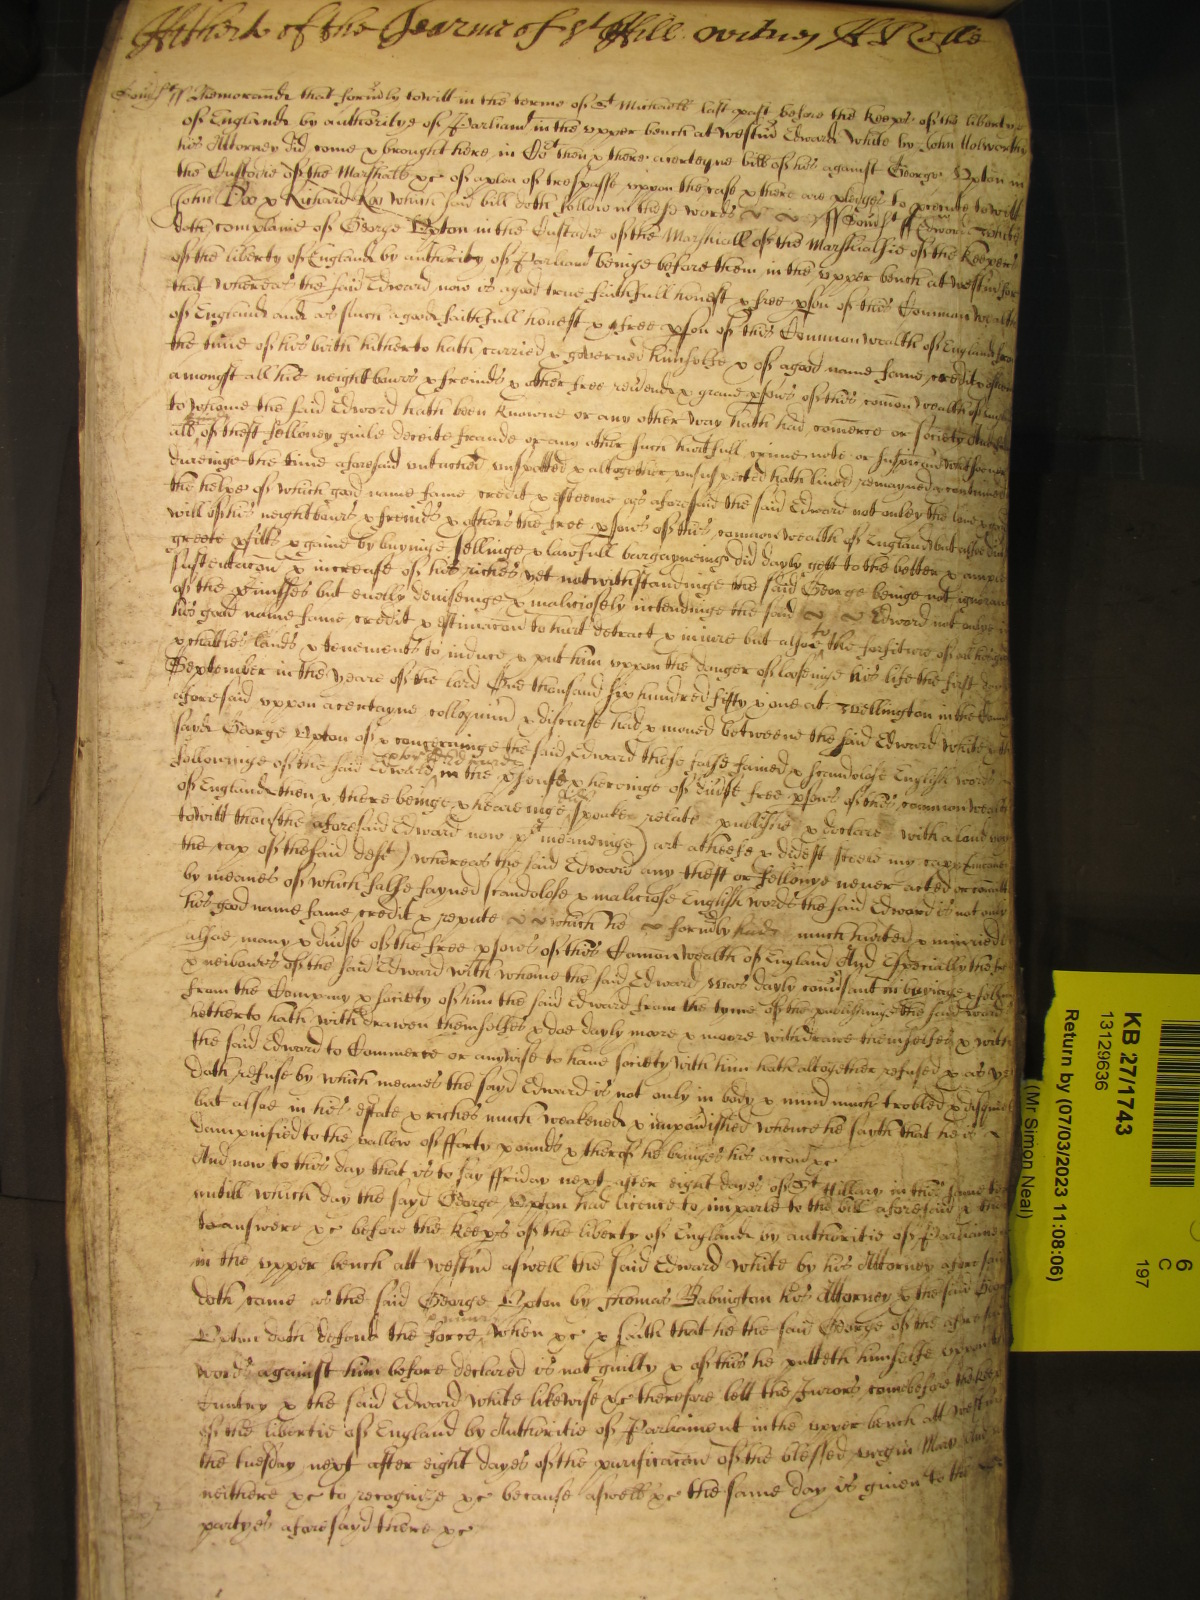 Hitherto of the Tearme of St Hill witnes H Rolle
Somst ss Memorand that formerly towitt in the terme of St Michaell last past before the Keeps of the liberty
of England by authoritye of Parliamt in the upper bench at Westm Edward White by John Holworthi
his Attorney did come & brought here in Cot then & there a certeyne bill of his against George Upton in
the Custodie of the Marshall &c of a plea of trespasse uppon the case & there are pledges to prosecute to witt
John Doo & Richard Roo which said bill doth follow in these words ss Somst ss Edward White
doth complaine of George Upton in the Custodie of the Marshall of the Marshalsie of the Keepers
of the liberty of England by authority of Parliamt beinge before them in the upper bench at Westm for
that whereas the said Edward now is a good true faithfull honest & free pson of this Common wealth
of England and as such a good faithfull honest & free pson of this Common wealth of England from
the time of his birth hitherto hath carried & governed himselfe & of a good name fame credit &
amongst all his neighbours & freinds & other free & grand psons of this comon wealth of
to whome the said Edward hath been knowne or any other way hath had comerce or society
all of theft felloney guile deceite fraude or any other such hurtfull crime note or suspicion whatsoever
dureinge the time aforesaid untuched unspotted & altogether unsuspected hath lived remayned & continued
the helpe of which good name fame credit & esteeme as aforesaid the said Edward not onley the love & good
will of his neighbours & freinds & others the free psons of this common wealth of England but alsoe
greate pfitts & gaine by buyinge sellinge & lawfull bargayneings did dayly gett to the better & ample
sustentacon & increase of his riches yet notwithstandinge the said George beinge not ignorant
of the pmisses but envily devisenge & maliciosely intendinge the said Edward not onlye in
his good name fame credit & estimacon to hurt detract & iniure but alsoe to the forfiture of all his goods
& chattles lands & tenements to induce & put him uppon the danger of looseinge his life the first day
September in the yeare of the lord One thousand six hundred fifty & one at Wellington in the County
aforesaid uppon a certayne colloquium & discurse had & moved betweene the said Edward White & the
said George Upton of & concerninge the said Edward these false fained & scandolose English words
followinge of the said Edward in the psence & hereinge of diuse free psons of this common wealth
of England then & there beinge & heareinge spoake relate publishe & declare with a loud voyce
towitt thou (the aforesaid Edward now pt meaneinge) art a theefe & didest steele my capp (meaneing
the cap of the said deft) whereas the said Edward any theft or fellonye never acted or comitted
by meanes of which false fayned scandolose & maliciose English words the said Edward is not only
his good name fame credit & repute which he formerly had much hurted & iniuried
alsoe many & diuse of the free psons of this Comon Wealth of England And Especially the
& neibours of the said Edward with whome the said Edward was dayly conversant in buyinge & sellinge
from the Company & society of him the said Edward from the tyme of the publishinge the said words
hetherto hath withdrawen themselfes & doe dayly moore & moore withdrawe themselfes & with
the said Edward to Commerce or anywise to have society with him hath altogether refused & as yet
doth refuse by which meanes the sayd Edward is not only in body & mind much trobled & disquieted
but alsoe in his estate & riches much weakened & impoverished whence he sayth that he is
dampnified to the vallew of fforty pounds & therof he bringes his accon &c
And now to this day that is to say ffriday next after eight dayes of St Hillary in this same terme
untill which day the sayd George Upton had licence to imparle to the bill aforesaid & then
to answere &c before the Keeps of the liberty of England by authoritie of Parliament
in the upper bench att Westm aswell the said Edward White by his Attorney aforesaid
doth come as the said George Upton by Thomas Babington his Attorney & the said George
Upton doth defend the force & iniury when &c & saith that he the said George of the aforesaid
words against him before declared is not guilty & of this he putteth himselfe uppon the
Cuntry & the said Edward White likewise &c therefore lett the Jurors come before the Keeps
of the libertie of England by Authoritie of Parliament in the upper bench att Westm
the tuesday next after eight dayes of the purificacon of the blessed virgin Mary And
neithere &c to recognize &c because aswell &c the same day is given to the
partyes aforesayd there &c
KB 27/1743
13129636
Return by (07/03/2023 11:08:06)
(Mr Simon Neal)
6
C
197